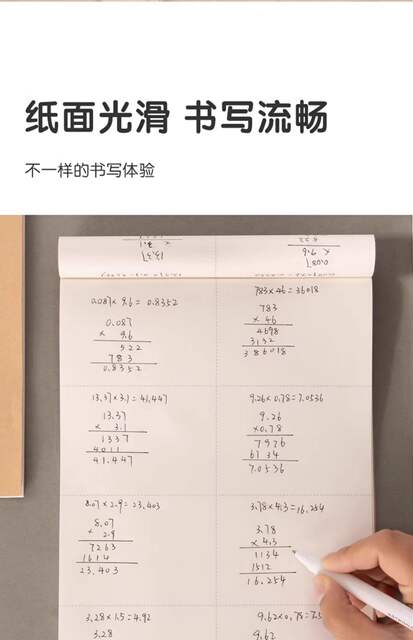 纸面光滑 书写流畅
不一样的书写体验
0.087×9.6=0.8352
0.087
× 9.6
522
783
0.8352
783×46=36018
783
× 46
4698
3132
386018
13.37×3.1=41.447
13.37
× 3.1
1337
4011
41.447
9.26×0.78=7.0536
9.26
×0.78
7926
6134
7.0536
8.07×2.9=23.403
8.07
× 2.9
7263
1614
23.403
3.78×4.3=16.254
3.78
× 4.3
1134
1512
16.254
3.28×1.5=4.92
3.28
9.62×0.75=7.5
9.62